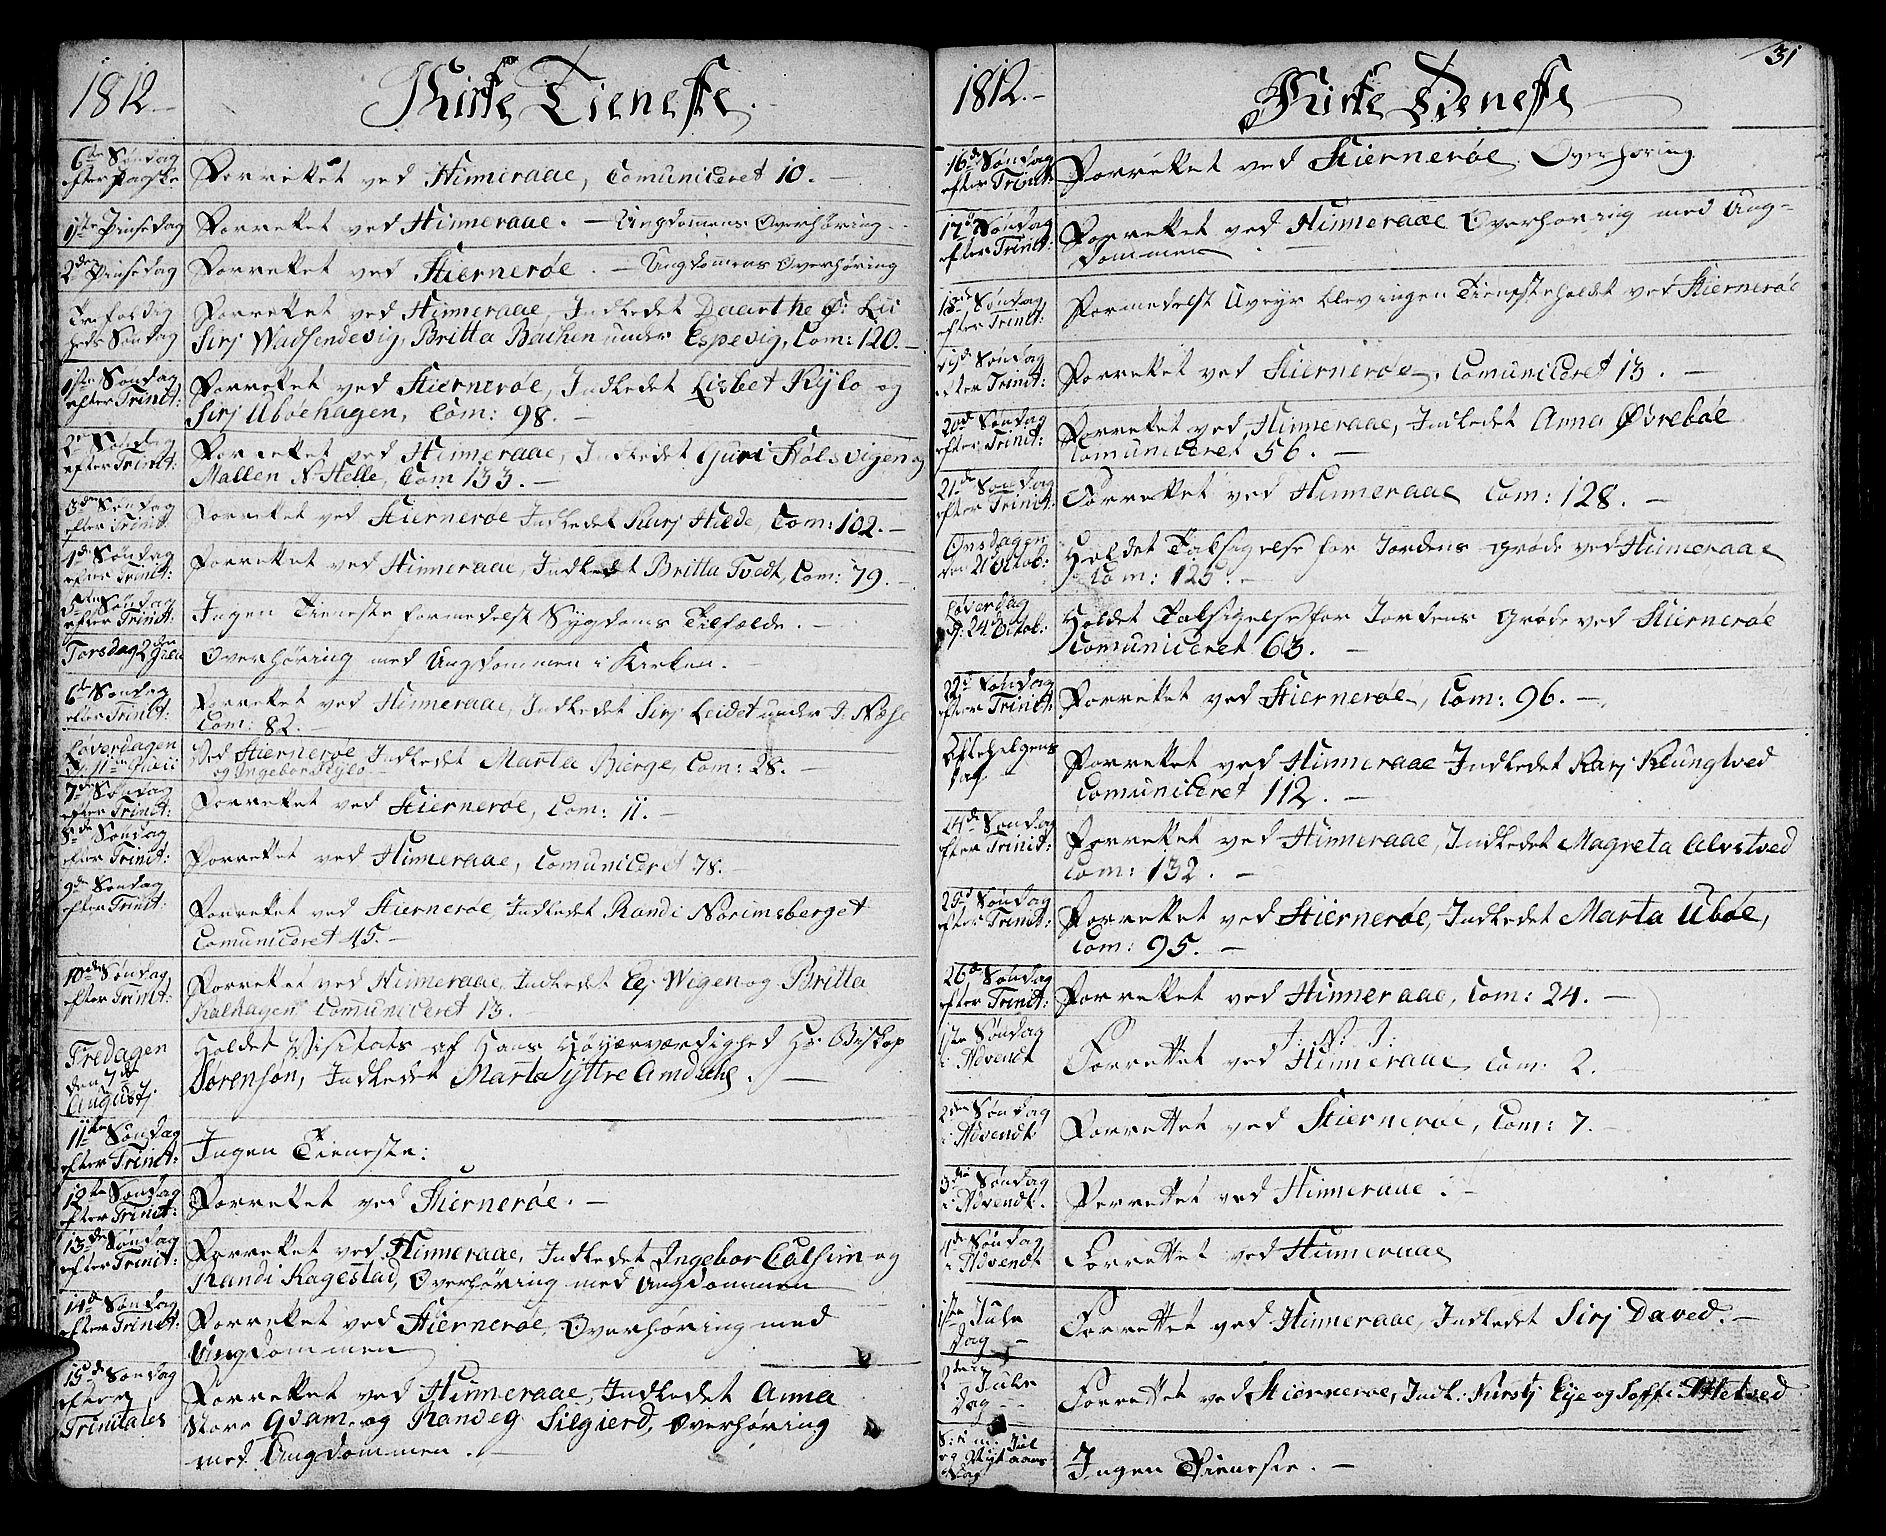 1812.
Kirke Tieneste.
6te Søndag
efter Paaske
Forrettet ved Hinneraae, Comuniceret 10. —
1ste Pinsedag
Forrettet ved Hinneraae. — Ungdommens Overhøring.
2den Pinsedag
Forrettet ved Hiernerøe. — Ungdommens Overhøring
Trefoldig
heds Søndag
Forrettet ved Hinneraae, Indledet Daarthe
Sirj Wadsendevig, Britta Bachen under Espevig, Com: 120. —
1ste Søndag
efter Trinit:
Forrettet ved Hiernerøe, Indledet Lisbet Kylo og
Sirj Ubøehagen, Com: 98. —
2den Søndag
efter Trinit:
Forrettet ved Hinneraae, Indledet Guri Hølsvigen og
Mallen N: Helle, Com 133. —
3die Søndag
efter Trinit
Forrettet ved Hiernerøe Indledet Kari Hilde, Com: 102. —
4de Søndag
efter Trinit:
Forrettet ved Hinneraae, Indledet Britta Tvedt, Com: 79. —
5te Søndag
efter Trinit:
Ingen Tieneste formedelst Sygdoms Tilfælde. —
Torsdag 2den Julii
Overhøring med Ungdommen i Kirken. —
6te Søndag
efter Trinit:
Forrettet ved Hinneraae, Indledet Sirj Leidet under I: Næse
Com: 82. —
Løverdagen
d: 11te Julii
Ved Hiernerøe Indledet Marta Bierge, Com: 28. —
og Ingebor Kylo
7de Søndag
efter Trinit:
Forrettet ved Hiernerøe, Com: 11. —
8de Søndag
efter Trinit:
Forrettet ved Hinneraae, Comuniceret 78. —
9de Søndag
efter Trinit:
Forrettet ved Hiernerøe, Indledet Randi Norimsberget
Comuniceret 45. —
10de Søndag
efter Trinit:
Forrettet ved Hinneraae, Indledet Elj. Wigen og Britta
Kalhagen Comuniceret 13. —
Fredagen
den 7de
August.
Holdet Visitats af Hans Høyærværdighed Hr. Biskop
Sørenson, Indledet Marta yttre Amdahl. —
11te Søndag
efter Trinit:
Ingen Tieneste:
12te Søndag
efter Trinit:
Forrettet ved Hiernerøe. —
13de Søndag
efter Trinit:
Forrettet ved Hinneraae, Indledet Ingebor Calsim og
Randi Ragestad, Overhøring med Ungdommen
14de Søndag
efter Trinit:
Forrettet ved Hiernerøe, Overhøring med
Ungdommen
15de Søndag
efter
Trinitates
Forrettet ved Hinneraae, Indledet Anna
Store Qvam. og Randeg Silgierd, Overhøring
med Ungdommen. —
31
1812. —
Kirke Tieneste
16de Søndag
efter Trinit:
Forrettet ved Hiernerøe. Overhøring
17de Søndag
efter Trinit:
Forrettet ved Hinneraae Overhøring med Ung-
dommen
18de Søndag
efter Trinit:
Formedelst Uveyr blev ingen Tieneste holdet ved Hiernerøe
19de Søndag
efter Trinit:
Forrettet ved Hiernerøe, Comuniceret 13. —
20de Søndag
efter Trinit:
Forrettet ved Hinneraae, Indledet Anna Øvrebøe
Comuniceret 56. —
21de Søndag
efter Trinit:
Forrettet ved Hinneraae Com: 128. —
Onsdagen
den 21 Octob:
Holdet Taksigelse for Jordens Grøde ved Hinneraae
Com: 125. —
Løverdag
d: 24 Octob:
Holdet Taksigelse for Jordens Grøde ved Hiernerøe
Comuniceret 63. —
22de Søndag
efter Trinit:
Forrettet ved Hiernerøe, Com: 96. —
Allehelgens
Dag
Forrettet ved Hinneraae Indledet Karj Klungtved
Comuniceret 112. —
24de Søndag
efter Trinit:
Forrettet ved Hinneraae, Indledet Magreta Alvstved
Com: 132. —
25de Søndag
efter Trinit:
Forrettet ved Hiernerøe, Indledet Marta Ubøe,
Com: 95. —
26de Søndag
efter Trinit:
Forrettet ved Hinneraae, Com: 24. —
I: N: I:
1ste Søndag
i Advendt
Forrettet ved Hinneraae Com: 2. —
2den Søndag
i Advendt
Forrettet ved Hiernerøe, Com: 7. —
3die Søndag
i Advendt.
Forrettet ved Hinneraae. —
4de Søndag
i Advendt
Forrettet ved Hinneraae
1ste Jule
Dag —
Forrettet ved Hinneraae, Indledet Sirj Daved. —
2den Jule
Dag —
Forrettet ved Hiernerøe, Indl: Kirstj Eye og Soffi Hetved
Jul
og Nytaars
Dag
Ingen Tieneste. —